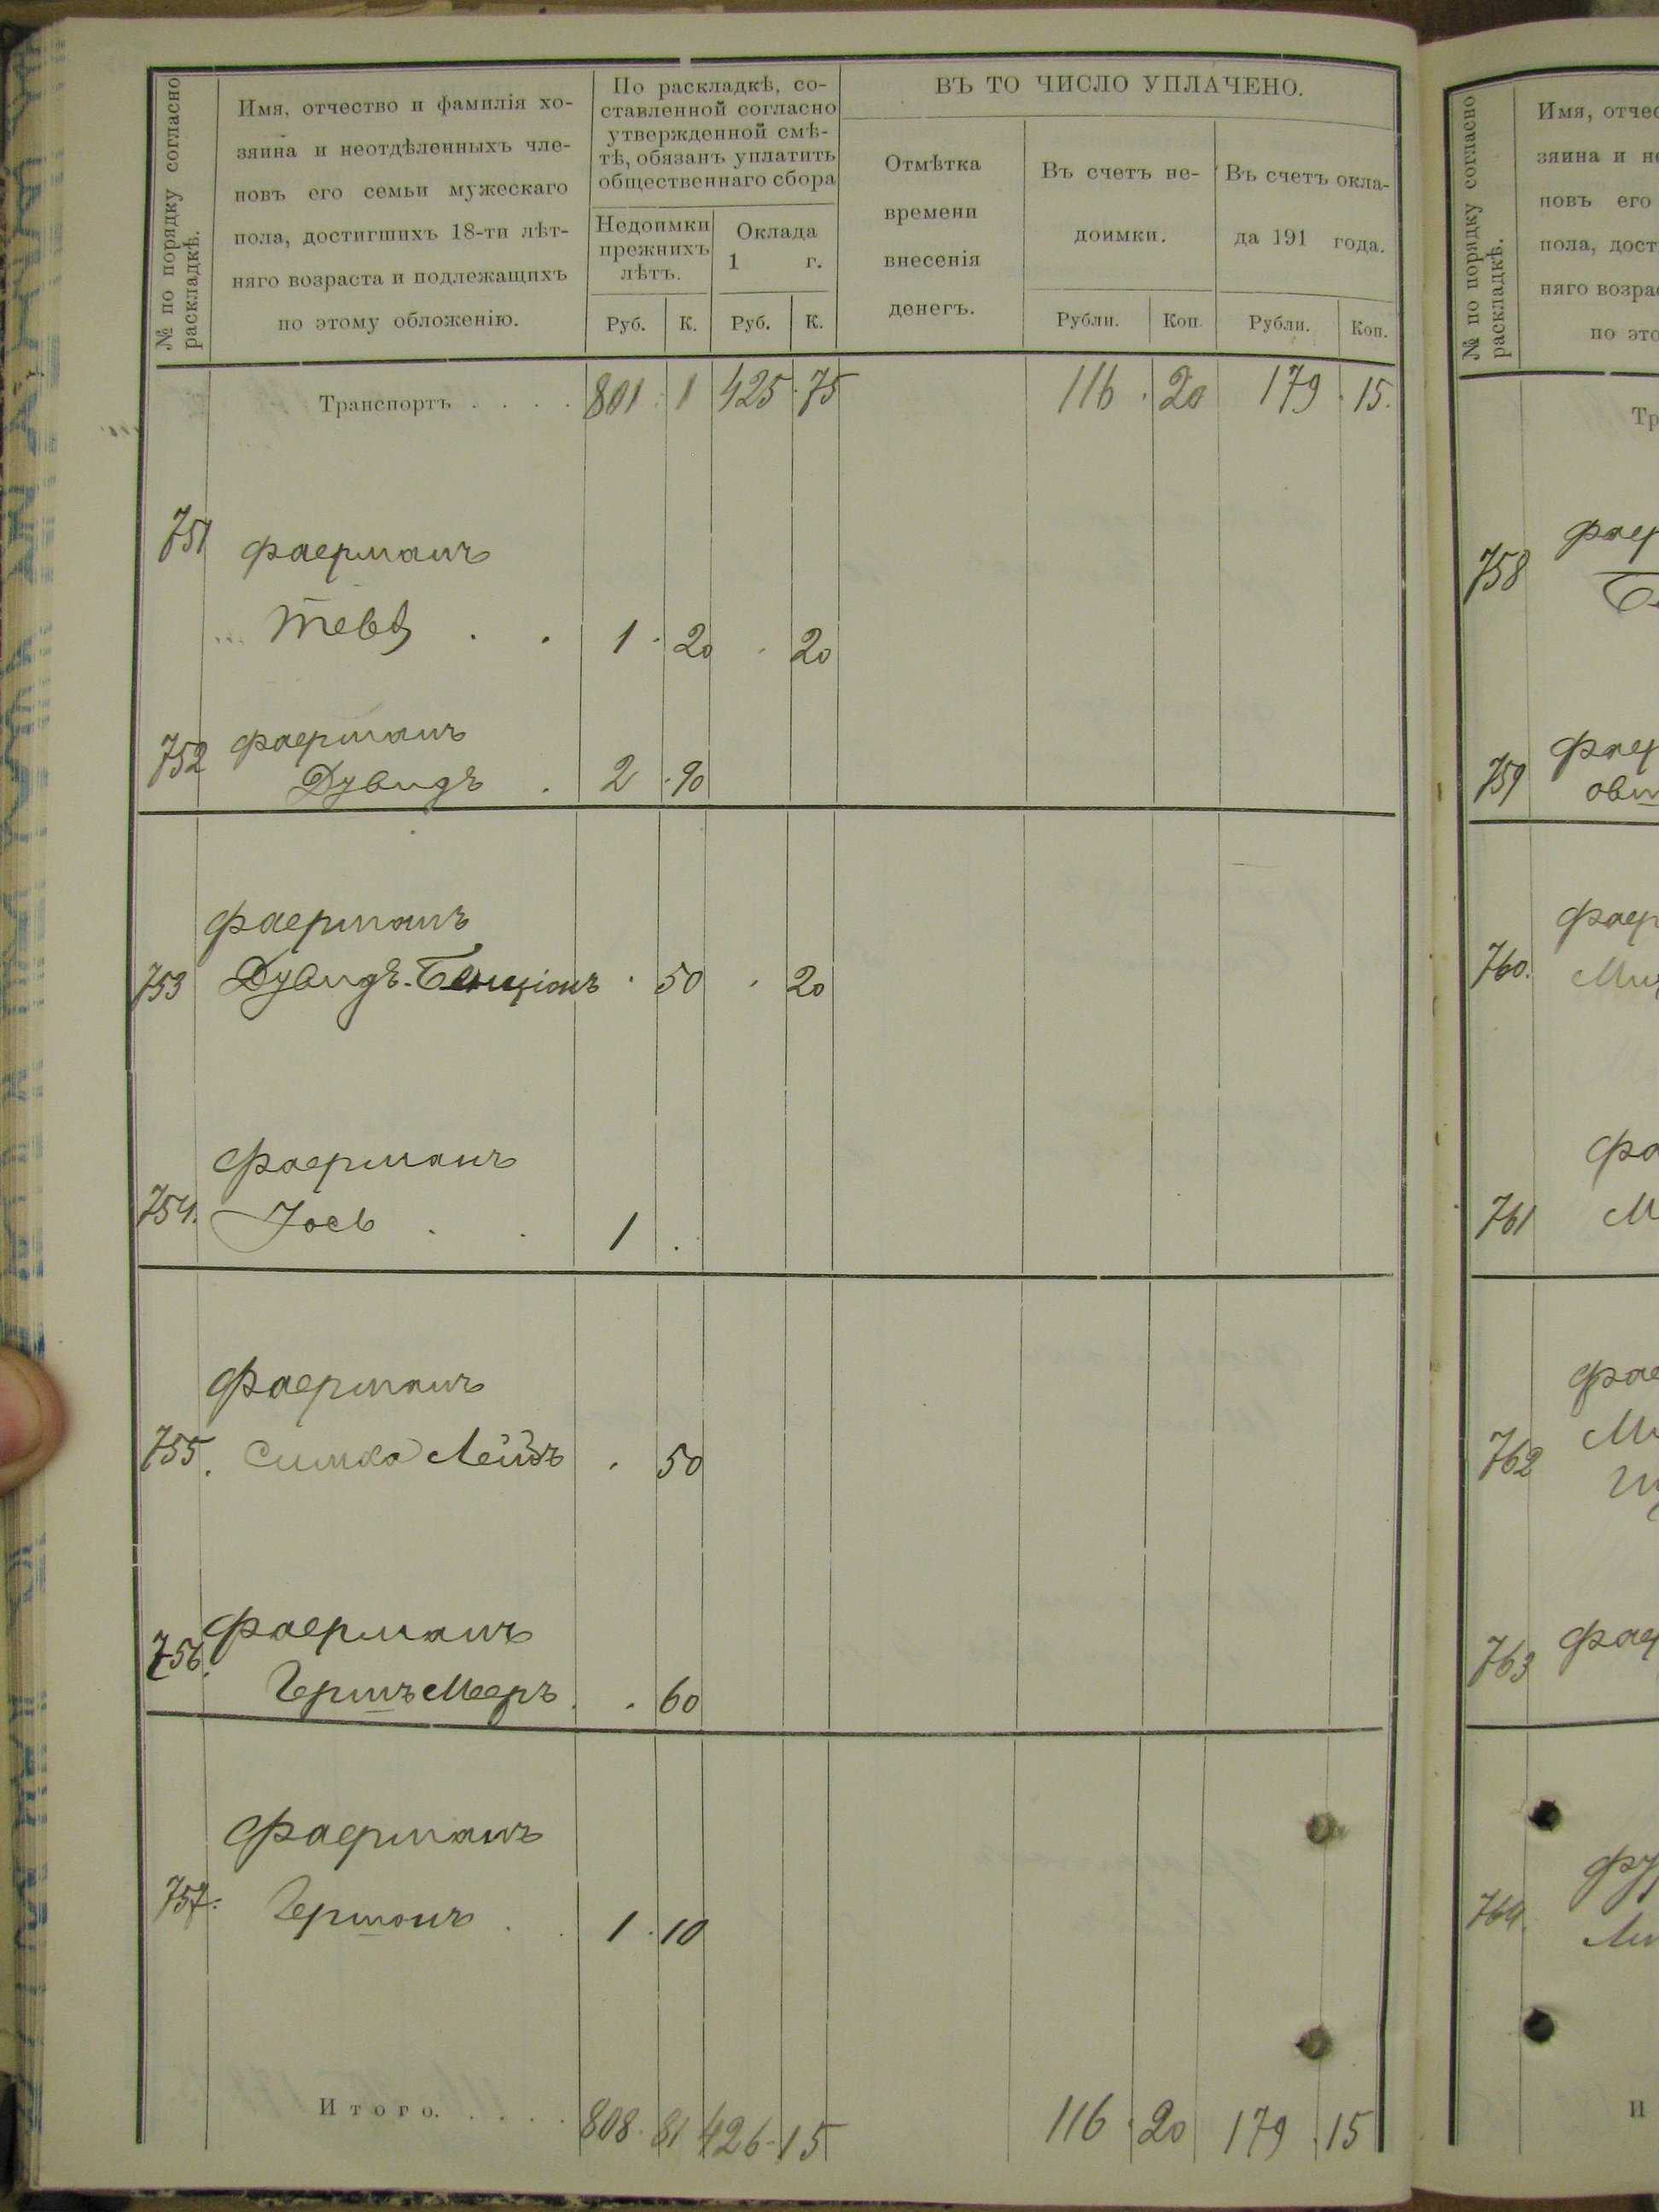 № по порядку согласно
раскладкѣ.
Имя, отчество и фамилія хо-
зяина и неотдѣленныхъ чле-
новъ его семьи мужескаго
пола, достигшихъ 18-ти лѣт-
няго возраста и подлежащихъ
по этому обложенію.
По раскладкѣ, со-
ставленной согласно
утвержденной смѣ-
тѣ, обязанъ уплатить
общественнаго сбора
Недоимки
прежнихъ
лѣтъ.
Оклада
1 г.
Руб. К. Руб. К.
ВЪ ТО ЧИСЛО УПЛАЧЕНО.
Отмѣтка
времени
внесенія
денегъ.
Въ счетъ не-
доимки.
Въ счетъ окла-
да 191 года.
Рубли. Коп. Рубли. Коп.
Транспортъ . . . . 801 1 425 75 116 20 179 15.
751 Фаерманъ
Тевѣ . . 1 20 20
752 Фаерманъ
Дувидъ . 2 90
Фаерманъ
753 Дувидъ-Бенціонъ 50 20
Фаерманъ
754. Іось . . 1 .
Фаерманъ
755. Симха Лейзъ 50
Фаерманъ
756. Гершъ Мееръ . 60
Фаерманъ
757. Гершонъ . . 1 10
Итого. . . . . 808 81 426 15 116 20 179 15
№ по порядку согласно
раскладкѣ.
Имя, отчес
зяина и не
новъ его
пола, дост
няго возрас
по это
Тр
758 Фаер
759 Фаер
овш
Фаер
760. Ми
Фа
761 М
Фае
762 Ми
763 Фаер
Фу
764. Ми
И